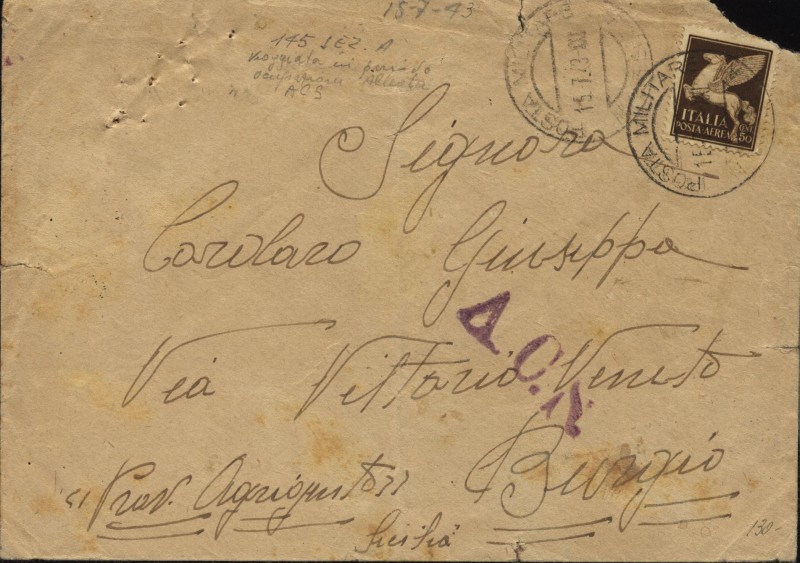 15-7-43
145 SEZ. A
viaggiata in periodo
occupazione alleata
ACS
POSTA MILITARE
15.7.43
POSTA MILITAR
15
ITALIA
POSTA-AEREA
CENT 50
Signora
Carolaro Giuseppa
A.C.S.
Via Vittorio Veneto
Burgio
"Prov. Agrigento"
Sicilia
130-